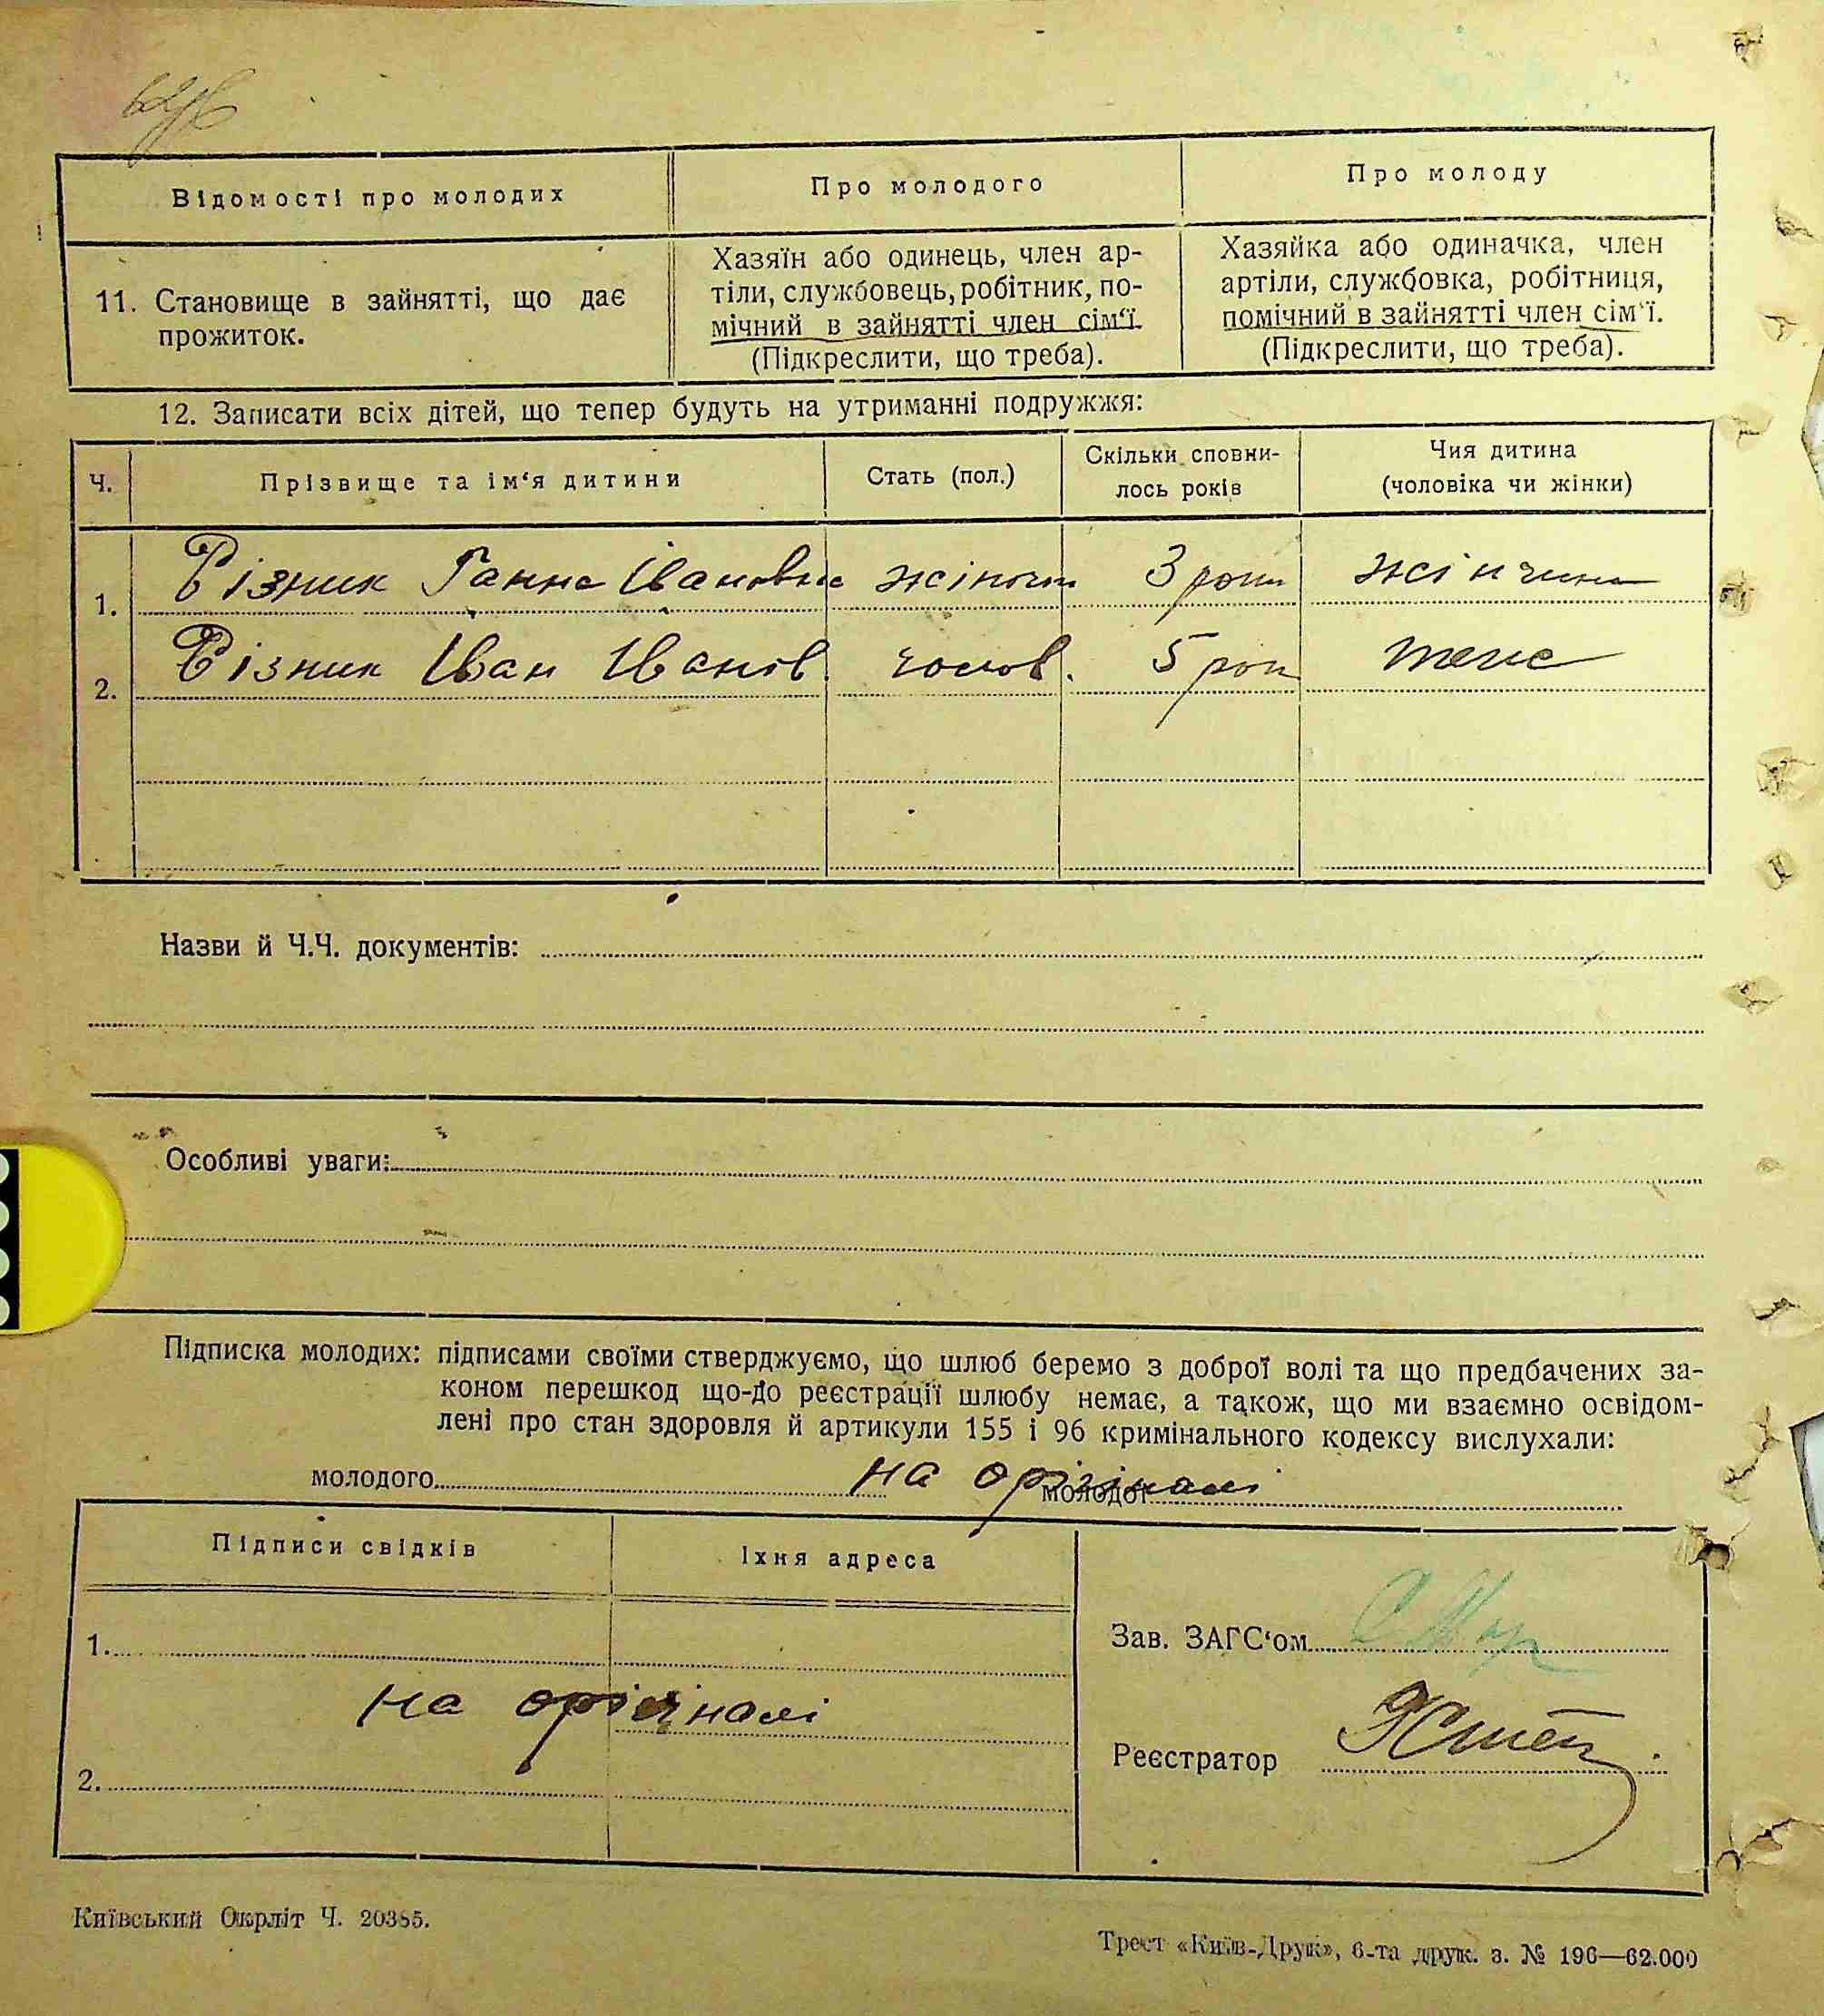 Відомості про молодих
Про молодого
Про молоду
11. Становище в зайнятті, що дає
прожиток.
Хазяїн або одинець, член ар-
тіли, службовець, робітник, по-
мічний в зайнятті член сім‘ї.
(Підкреслити, що треба).
Хазяйка або одиначка, член
артіли, службовка, робітниця,
помічний в зайнятті член сім‘ї.
(Підкреслити, що треба).
12. Записати всіх дітей, що тепер будуть на утриманні подружжя:
Ч.
Прізвище та ім‘я дитини
Стать (пол.)
Скільки сповни-
лось років
Чия дитина
(чоловіка чи жінки)
1. Різник Ганна Івановна жіноч 3 роки жінчина
2. Різник Іван Іванов. чолов. 5 рок теж
Назви й Ч.Ч. документів:
Особливі уваги:
Підписка молодих: підписами своїми стверджуємо, що шлюб беремо з доброї волі та що предбачених за-
коном перешкод що-до реєстрації шлюбу немає, а також, що ми взаємно освідом-
лені про стан здоровля й артикули 155 і 96 кримінального кодексу вислухали:
молодого на орігіналі молодої
Підписи свідків
Їхня адреса
1.
на орігіналі
2.
Зав. ЗАГС‘ом
Реєстратор
Київський Окрліт Ч. 20385.
Трест «Київ-Друк», 6-та друк. з. № 196—62.000